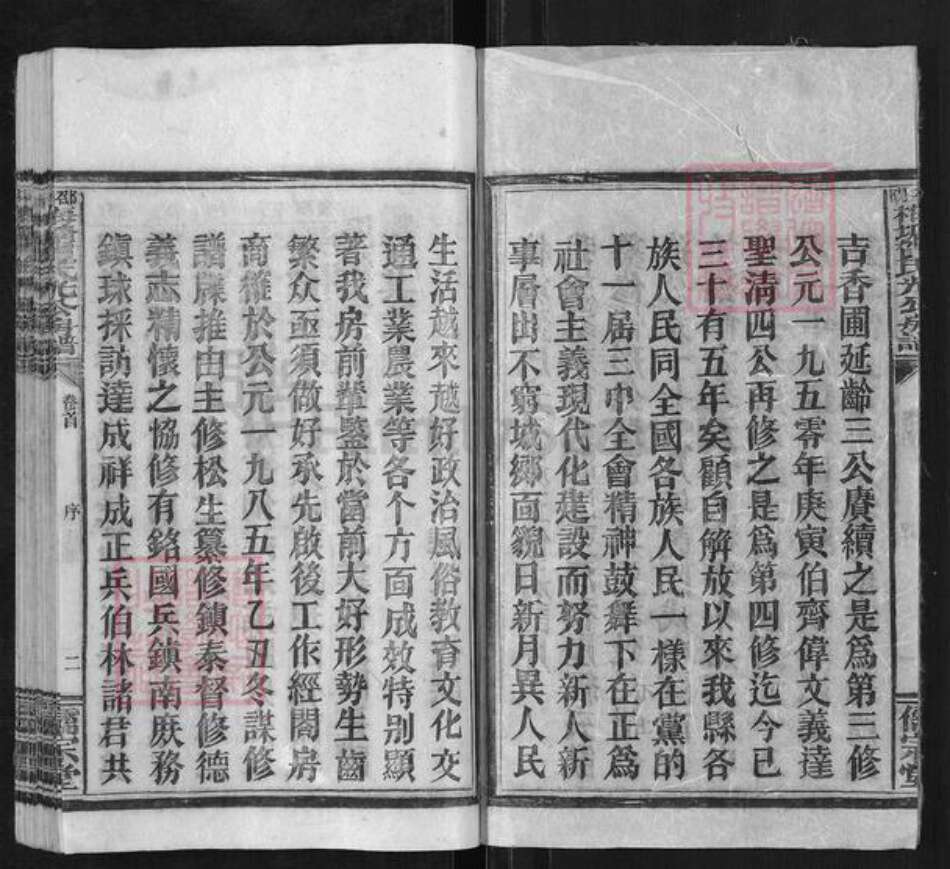 吉香圃延齡三公賡續之是爲第三修
公元一九五零年庚寅伯齊偉文義達
聖清四公再修之是爲第四修迄今已
三十有五年矣顧自解放以來我縣各
族人民同全國各族人民一樣在黨的
十一届三中全會精神鼓舞下在正爲
社會主義現代化建設而努力新人新
事層出不窮城鄉面貌日新月異人民
生活越來越好政治風俗教育文化交
通工業農業等各个方面成效特别顯
著我房前輩鑒於當前大好形勢生齒
繁众亟須做好承先啟後工作經閤房
商榷於公元一九八五年乙丑冬謀修
譜牒推由主修松生纂修鎮泰督修德
義志精懷之恊修有銘國兵鎮南庶務
鎮球採訪達成祥成正兵伯林諸君共
卷首
序
二